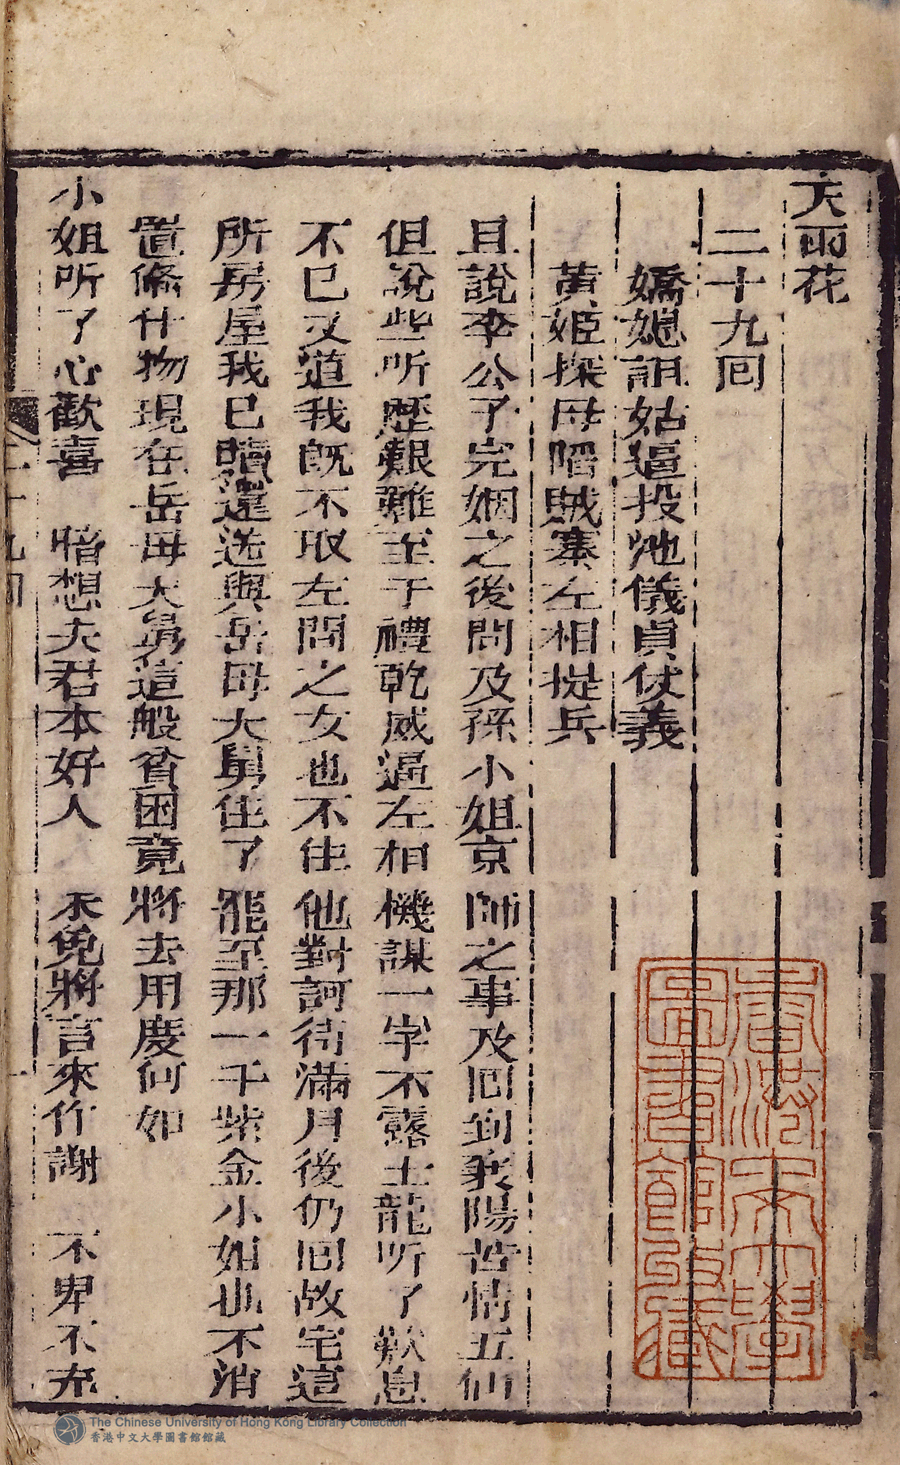 天雨花
二十九回
嬌媳詛姑逼投池儀貞仗義
黃姬探母陷賊寨左相提兵
且說李公子完姻之後問及孫小姐京師之事及囘到襄陽苦情五仙
但說些所歷艱難至于禮乾威逼左相機謀一字不露士龍听了歎息
不已又道我既不取左問之女也不住他對訶待滿月後仍囘故宅這
所房屋我已贖還送與岳母大舅住了罷至那一千紫金小姐也不消
置俻什物現在岳母大舅這般貧困竟將去用度何如
小姐听了心歡喜 暗想夫君本好人 未免將言來作謝 不卑不亢
二十九回
香港中文大學
圖書館收藏
The Chinese University of Hong Kong Library Collection
香港中文大學圖書館館藏